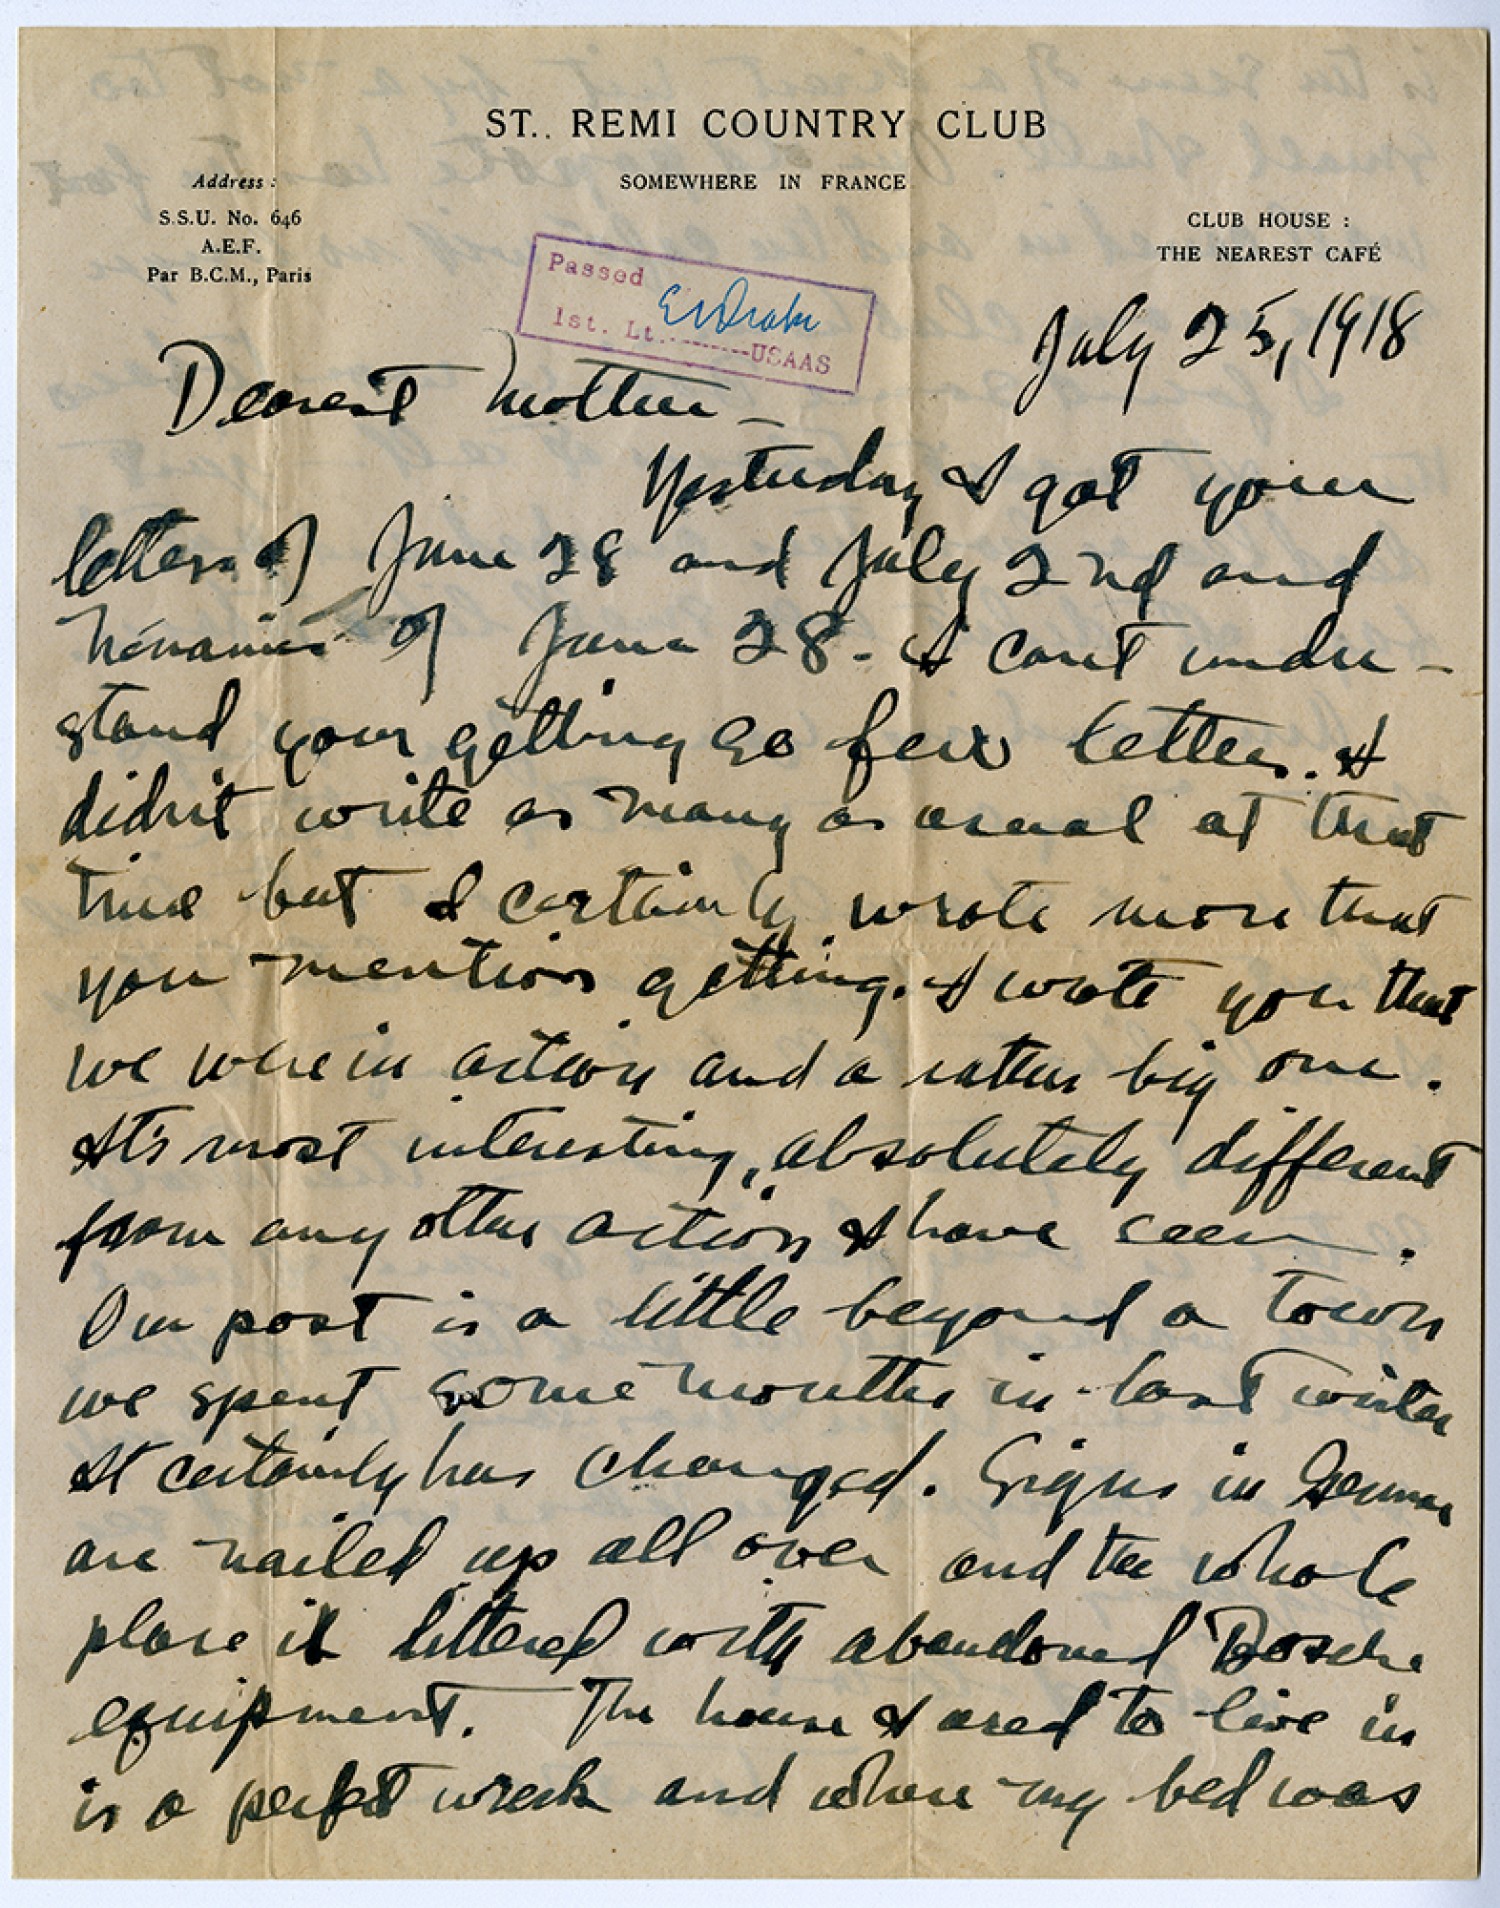 ST.. REMI COUNTRY CLUB
SOMEWHERE IN FRANCE
Address :
S.S.U. No. 646
A.E.F.
Par B.C.M., Paris
CLUB HOUSE :
THE NEAREST CAFÉ
Passed
1st. Lt.--------USAAS
July 25, 1918
Dearest Mother –
Yesterday I got your
letters of June 28 and July 2nd and
of June 28. I can't under-
stand your getting so few letters. I
didn't write as many as usual at that
time but I certainly wrote more that
you mention getting. I wrote you that
we were in action and a rather big one.
It's most interesting, absolutely different
from any other action I have seen.
Our post is a little beyond a town
we spent some months in last winter
It certainly has changed. Signs in German
are nailed up all over and the whole
place is littered with abandoned Bosche
equipment. The house I used to live in
is a perfect wreck and where my bed was